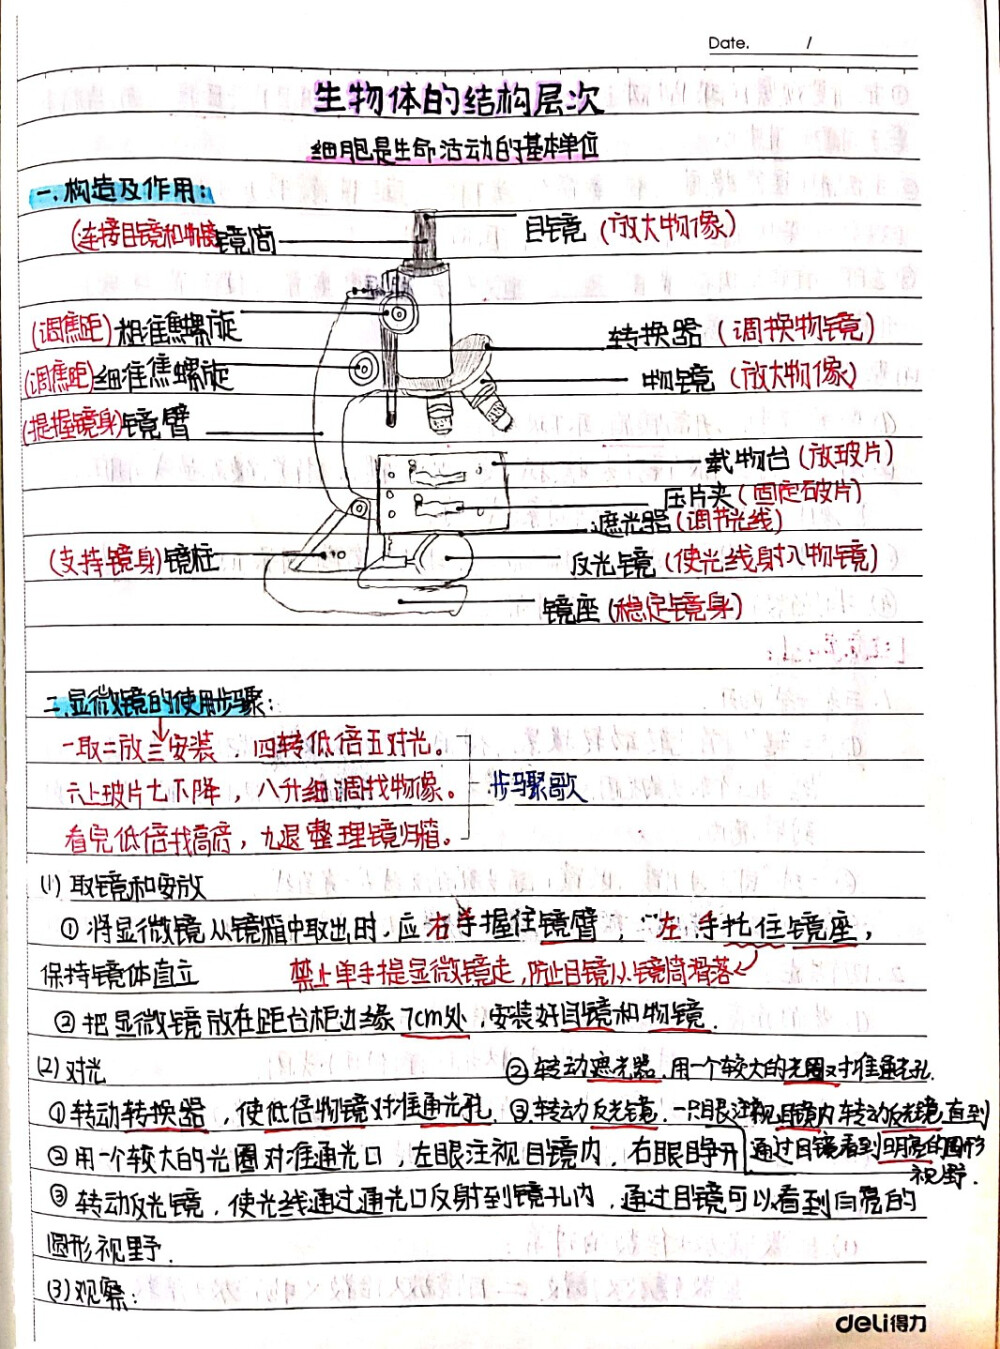 Date. /
生物体的结构层次
细胞是生命活动的基本单位
一.构造及作用:
(连接目镜和物镜)镜筒
目镜 (放大物像)
(调焦距)粗准焦螺旋
转换器 (调换物镜)
(调焦距)细准焦螺旋
物镜 (放大物像)
(提握镜身)镜臂
载物台 (放玻片)
压片夹 (固定玻片)
遮光器 (调节光线)
(支持镜身)镜柱
反光镜 (使光线射入物镜)
镜座 (稳定镜身)
二.显微镜的使用步骤:
一取二放三安装，四转低倍五对光。
六上玻片七下降，八升细调找物像。 步骤歌
看完低倍找高倍，九退整理镜归箱。
(1) 取镜和安放
①将显微镜从镜箱中取出时,应右手握住镜臂，左手托住镜座，
保持镜体直立 禁止单手提显微镜走,防止目镜从镜筒滑落
②把显微镜放在距台柜边缘7cm处,安装好目镜和物镜.
(2) 对光
②转动遮光器,用一个较大的光圈对准通光孔.
①转动转换器，使低倍物镜对准通光孔.
③转动反光镜.一只眼注视目镜内,转动反光镜直到
通过目镜看到明亮的圆形
视野.
②用一个较大的光圈对准通光口,左眼注视目镜内,右眼睁开
③转动反光镜,使光线通过通光口反射到镜孔内,通过目镜可以看到白亮的
圆形视野.
(3)观察:
deli得力